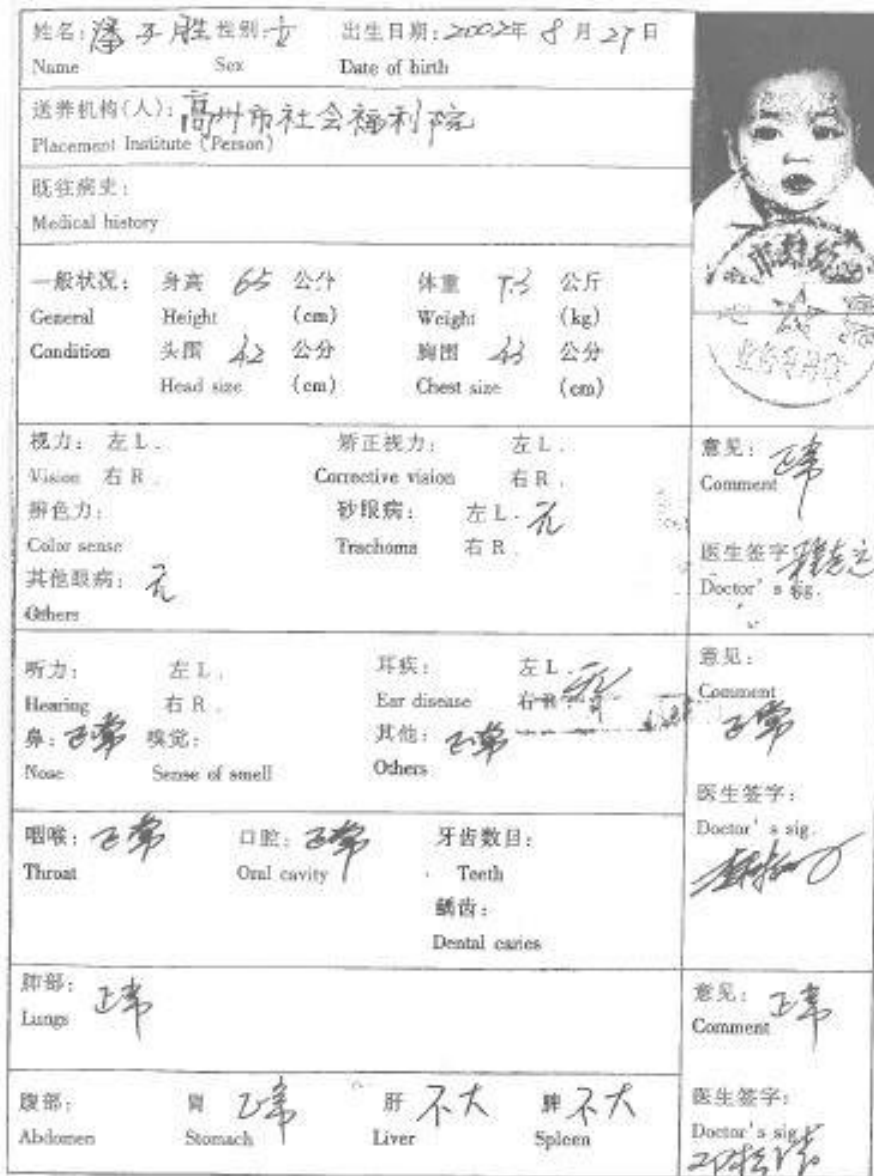 姓名：潘子胜 性别：女 出生日期：2002年 8 月 27 日
Name Sex Date of birth
送养机构(人)：高州市社会福利院
Placement Institute (Person)
既往病史：
Medical history
一般状况： 身高 65 公分 体重 7.3 公斤
General Height (cm) Weight (kg)
Condition 头围 42 公分 胸围 43 公分
Head size (cm) Chest size (cm)
视力： 左 L． 矫正视力： 左 L． 意见：正常
Vision 右 R． Corrective vision 右 R． Comment
辨色力： 砂眼病： 左 L．无
Color sense Trachoma 右 R． 医生签字
其他眼病：无 Doctor's sig.
Others
听力： 左 L． 耳疾： 左 L． 意见：
Hearing 右 R． Ear disease 右 R．无 Comment
鼻：正常 嗅觉： 其他：正常 正常
Nose Sense of smell Others
医生签字：
咽喉：正常 口腔：正常 牙齿数目： Doctor's sig.
Throat Oral cavity Teeth
龋齿：
Dental caries
肺部：正常 意见：正常
Lungs Comment
腹部： 胃 正常 肝 不大 脾 不大 医生签字：
Abdomen Stomach Liver Spleen Doctor's sig.